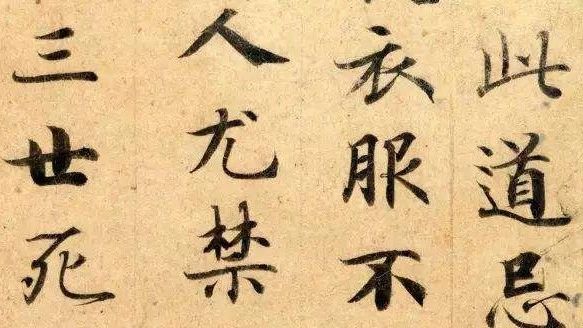 此道忌
衣服不
人尤禁
三世死